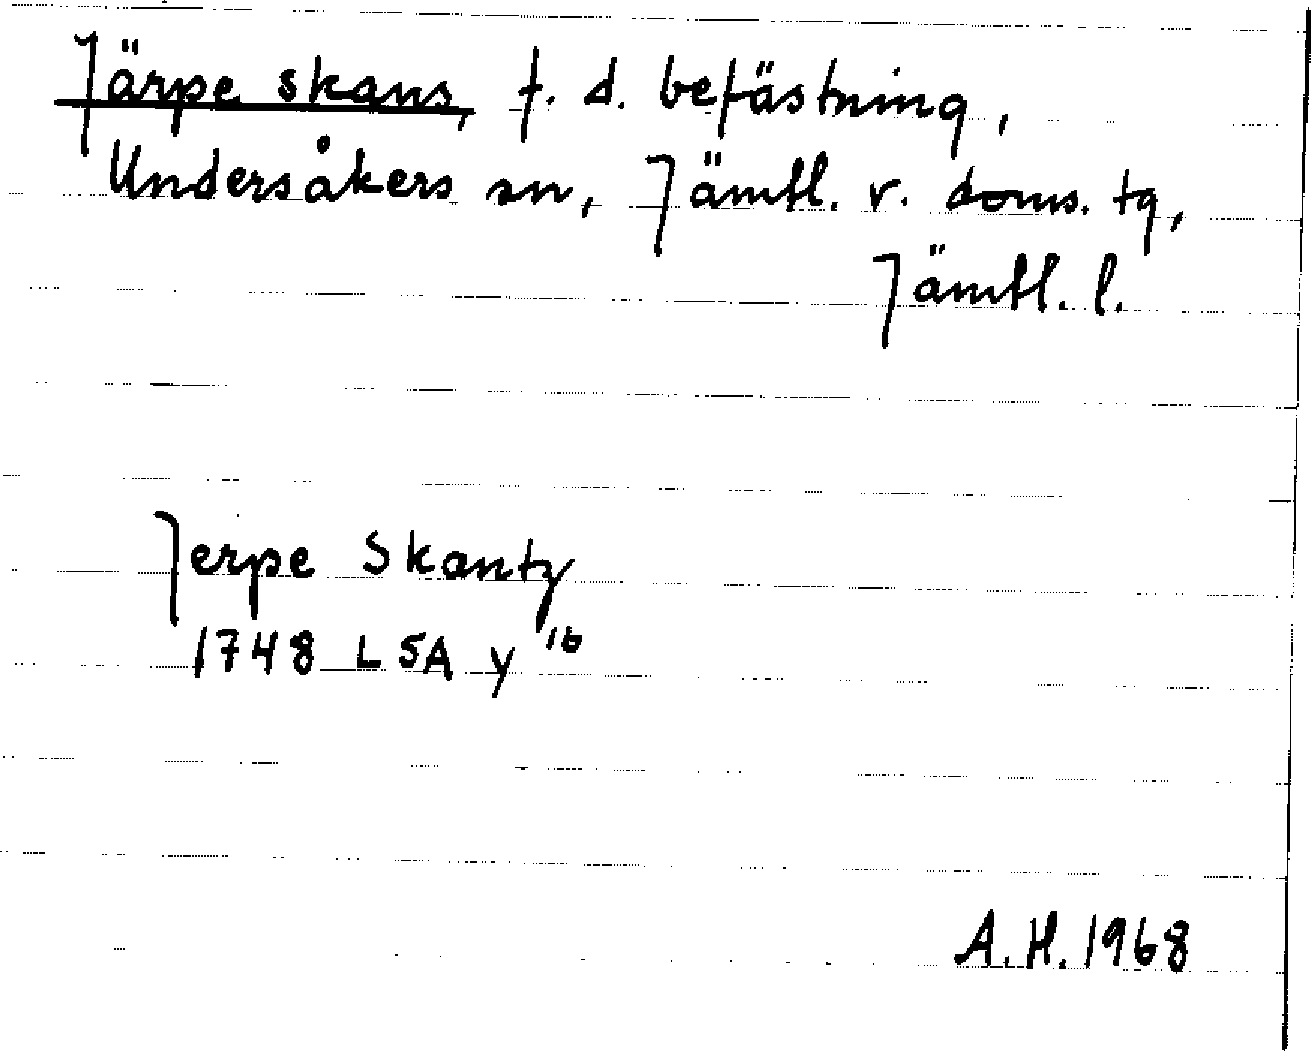 Järpe skans, f. d. befästning,
Undersåkers sn, Jämtl. v. doms. tg,
Jämtl. l.
Jerpe Skantz
1748 LSA y 16
A.H. 1968